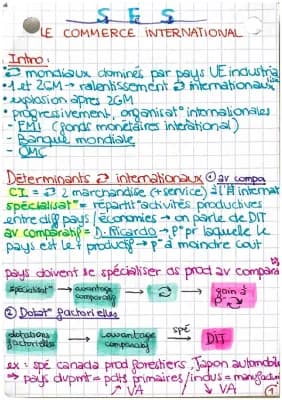 S E S
LE COMMERCE INTERNATIONAL
Intro:
• ⇄ mondiaux dominés par pays UE industria
• 1 et 2GM → ralentissement ⇄ internationaux
• explosion apres 2GM
• progressivement, organisat° internationales
- FMI (fonds monétaires international)
- Banque mondiale
- OMC
Déterminants ⇄ internationaux ① av compa
CI = ⇄ 2 marchandise (+ service) à l'# internat
spécialisat° = répartit° activités productives
entre diff pays / économies → on parle de DIT
av comparatif = D. Ricardo → p° pr laquelle le
pays est le + productif → p° à moindre cout
pays doivent se spécialiser ds prod av compara
spécialisat° → avantage comparatif → ⇄ → gain à p° ⇄
② Dotat° factorielles
dotations factorielles → avantage comparatif → spé DIT
ex : spé canada prod forestiers, Japon automobile
→ pays dvpmt = pdts primaires / indus = manufactur
↗ VA ↘ VA
1